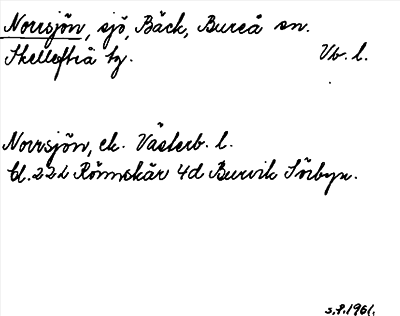 Norrsjön, sjö, Bäck, Bureå sn.
Skellefteå tg. Vb. l.
Norrsjön, ek. Västerb. l.
bl. 22L Rönnskär 4d Burvik Sörbyn.
s. f. 1961.